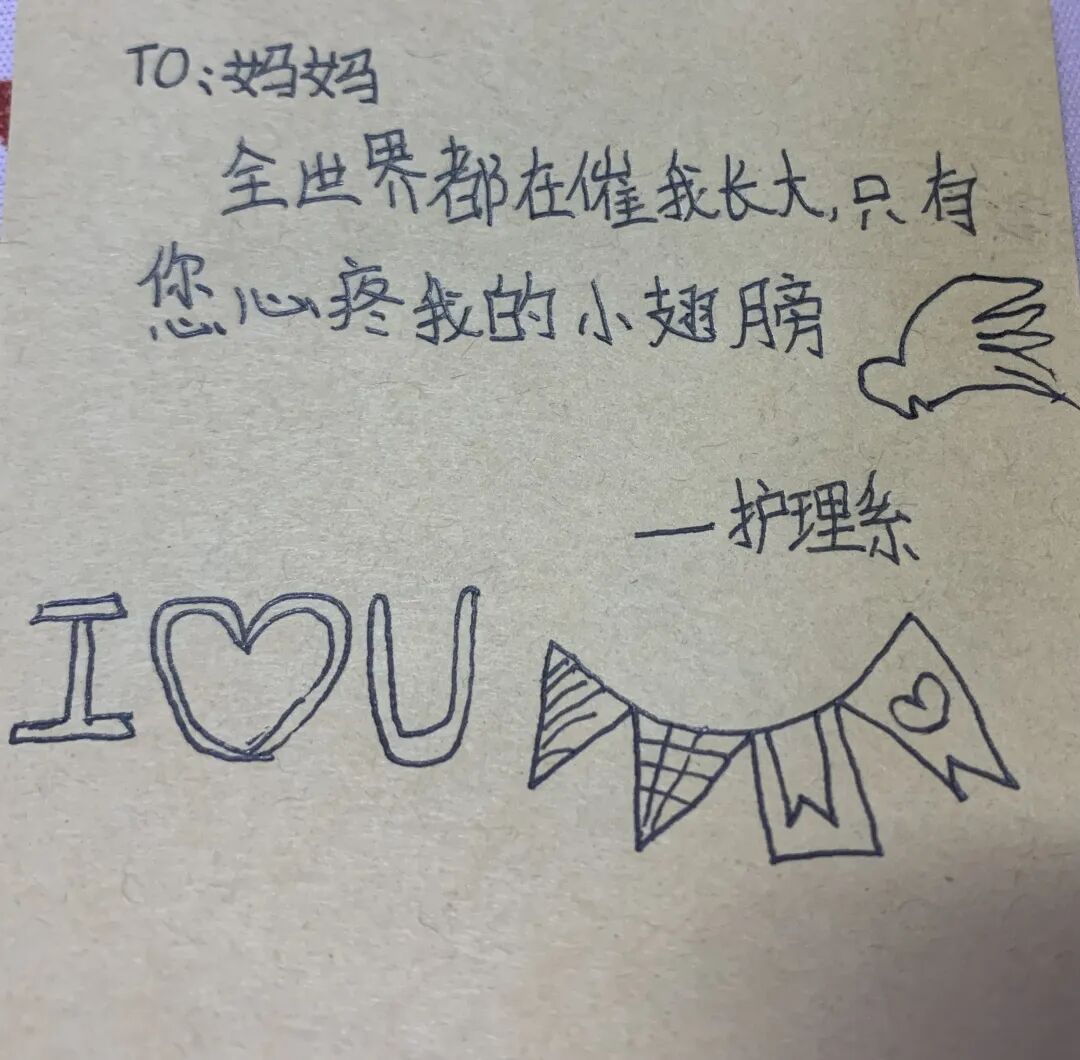 TO:妈妈
全世界都在催我长大,只有
您心疼我的小翅膀
一护理系
I U